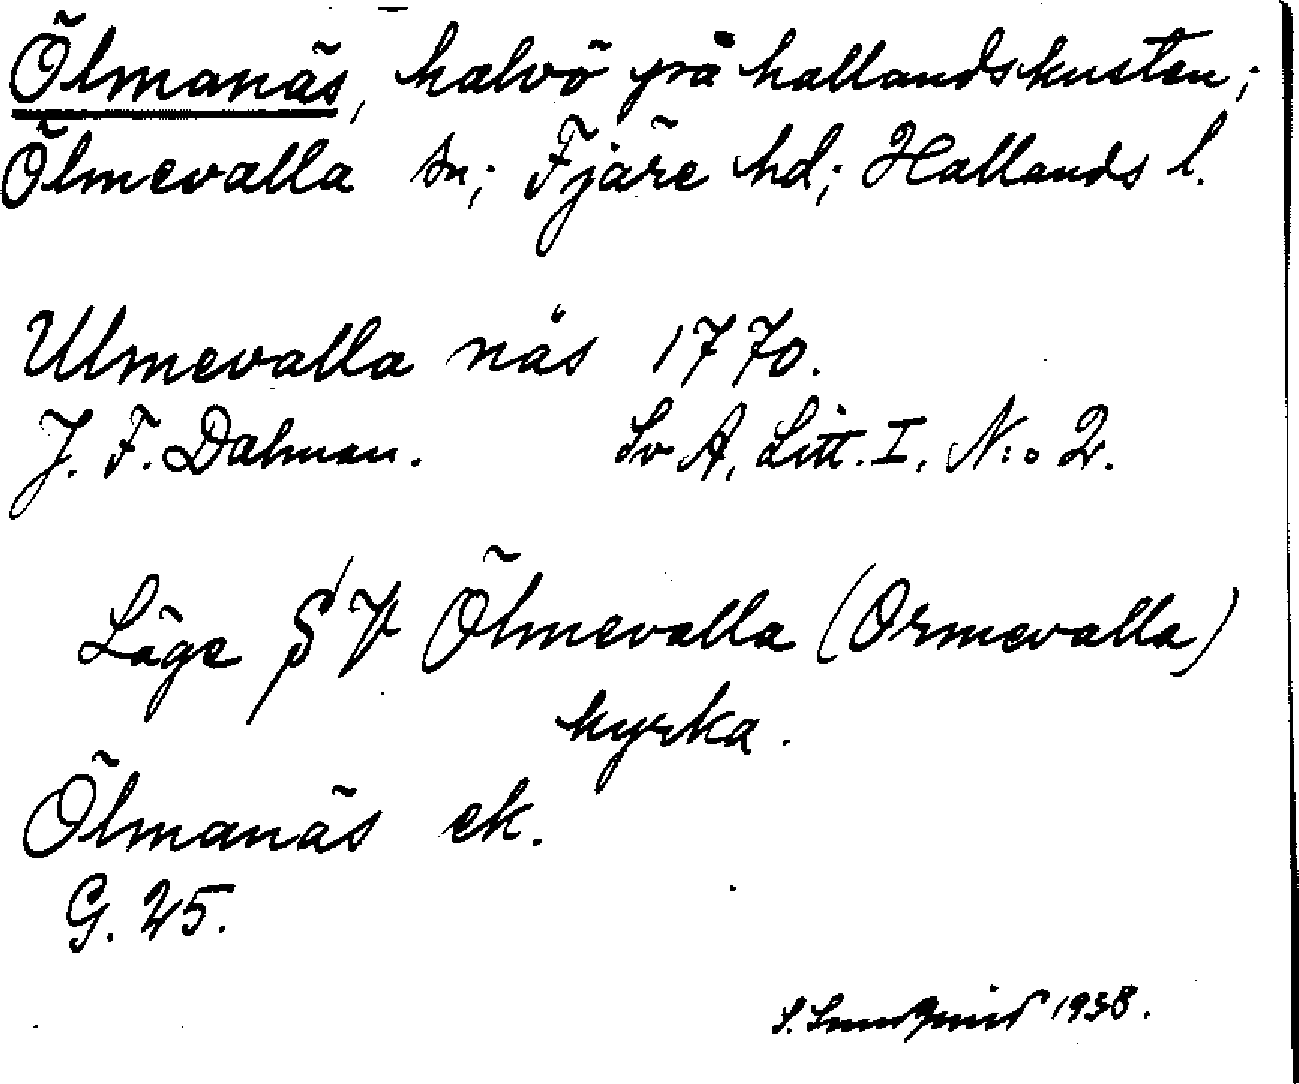 Ölmanäs, halvö på hallandskusten;
Ölmevalla sn; Fjäre hd; Hallands l.
Ulmevalla näs 1770.
J. F. Dalman. Sv A, Litt. I, N:o 2.
Läge § V Ölmevalla (Ormevalla)
kyrka.
Ölmanäs ek.
G. 25.
S. 1938.